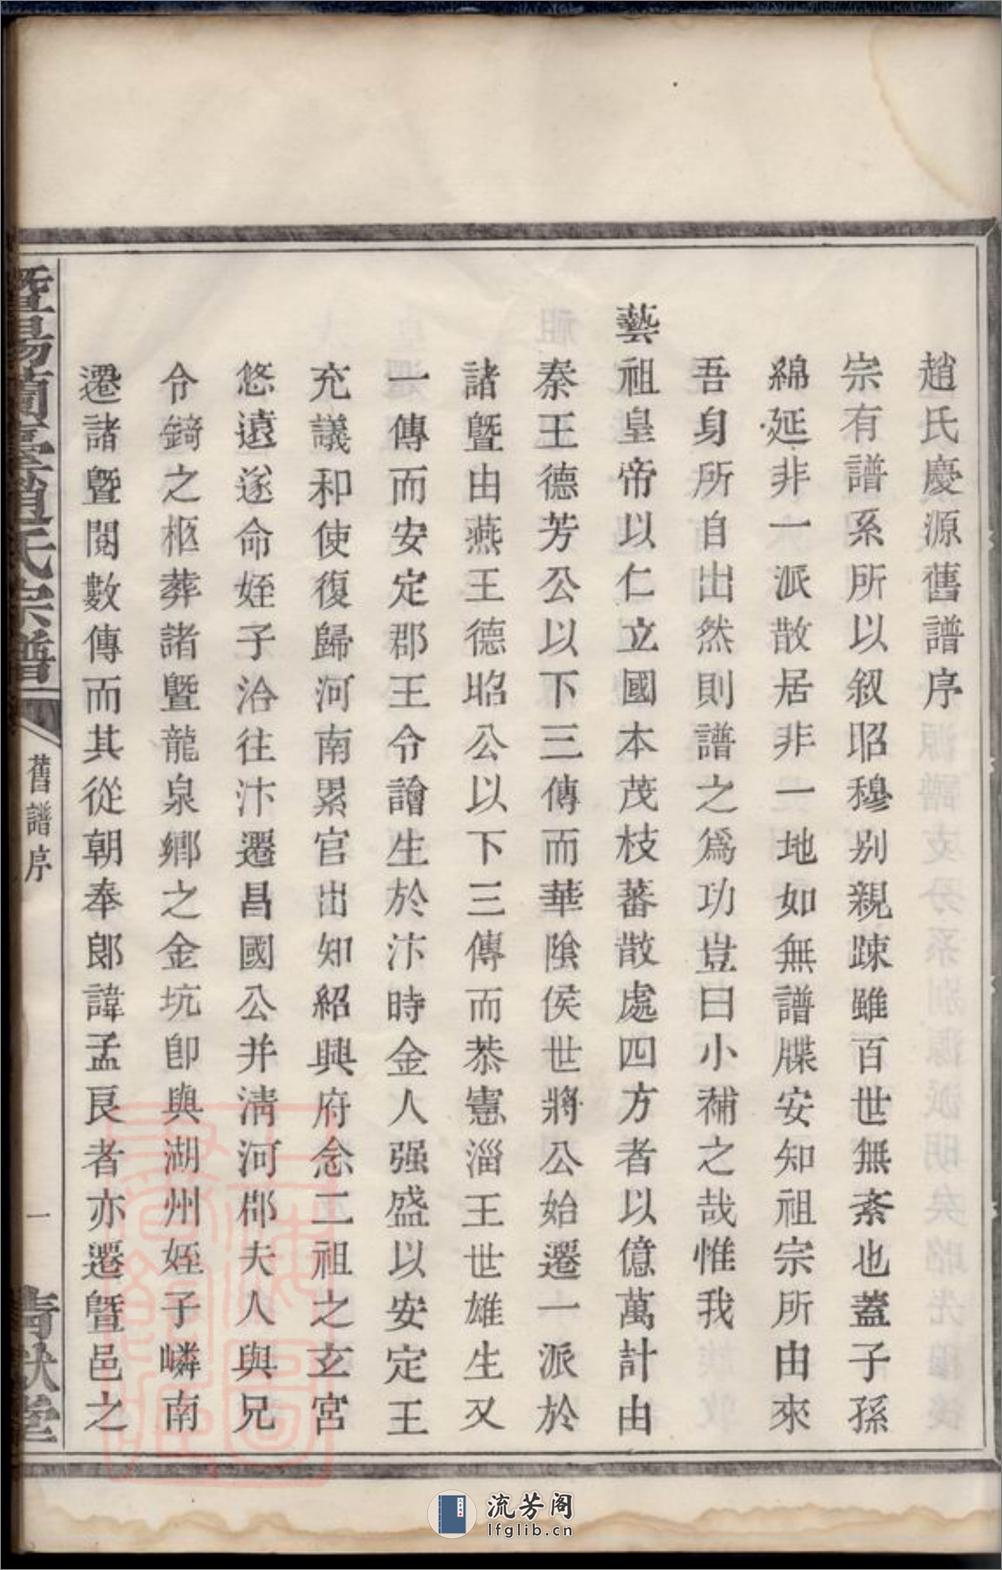 趙氏慶源舊譜序
宗有譜系所以叙昭穆別親疎雖百世無紊也蓋子孫
綿延非一派散居非一地如無譜牒安知祖宗所由來
吾身所自出然則譜之爲功豈曰小補之哉惟我
藝祖皇帝以仁立國本茂枝蕃散處四方者以億萬計由
秦王德芳公以下三傳而華陰侯世將公始遷一派於
諸暨由燕王德昭公以下三傳而恭憲淄王世雄生又
一傳而安定郡王令譮生於汴時金人强盛以安定王
充議和使復歸河南累官出知紹興府念二祖之玄宮
悠遠遂命姪子洽往汴遷昌國公并淸河郡夫人與兄
令錡之柩葬諸暨龍泉鄉之金坑卽與湖州姪子嶙南
遷諸暨閱數傳而其從朝奉郎諱孟良者亦遷暨邑之
暨陽蘭臺趙氏宗譜
舊譜序
一
淸獻堂
流芳阁
lfglib.cn